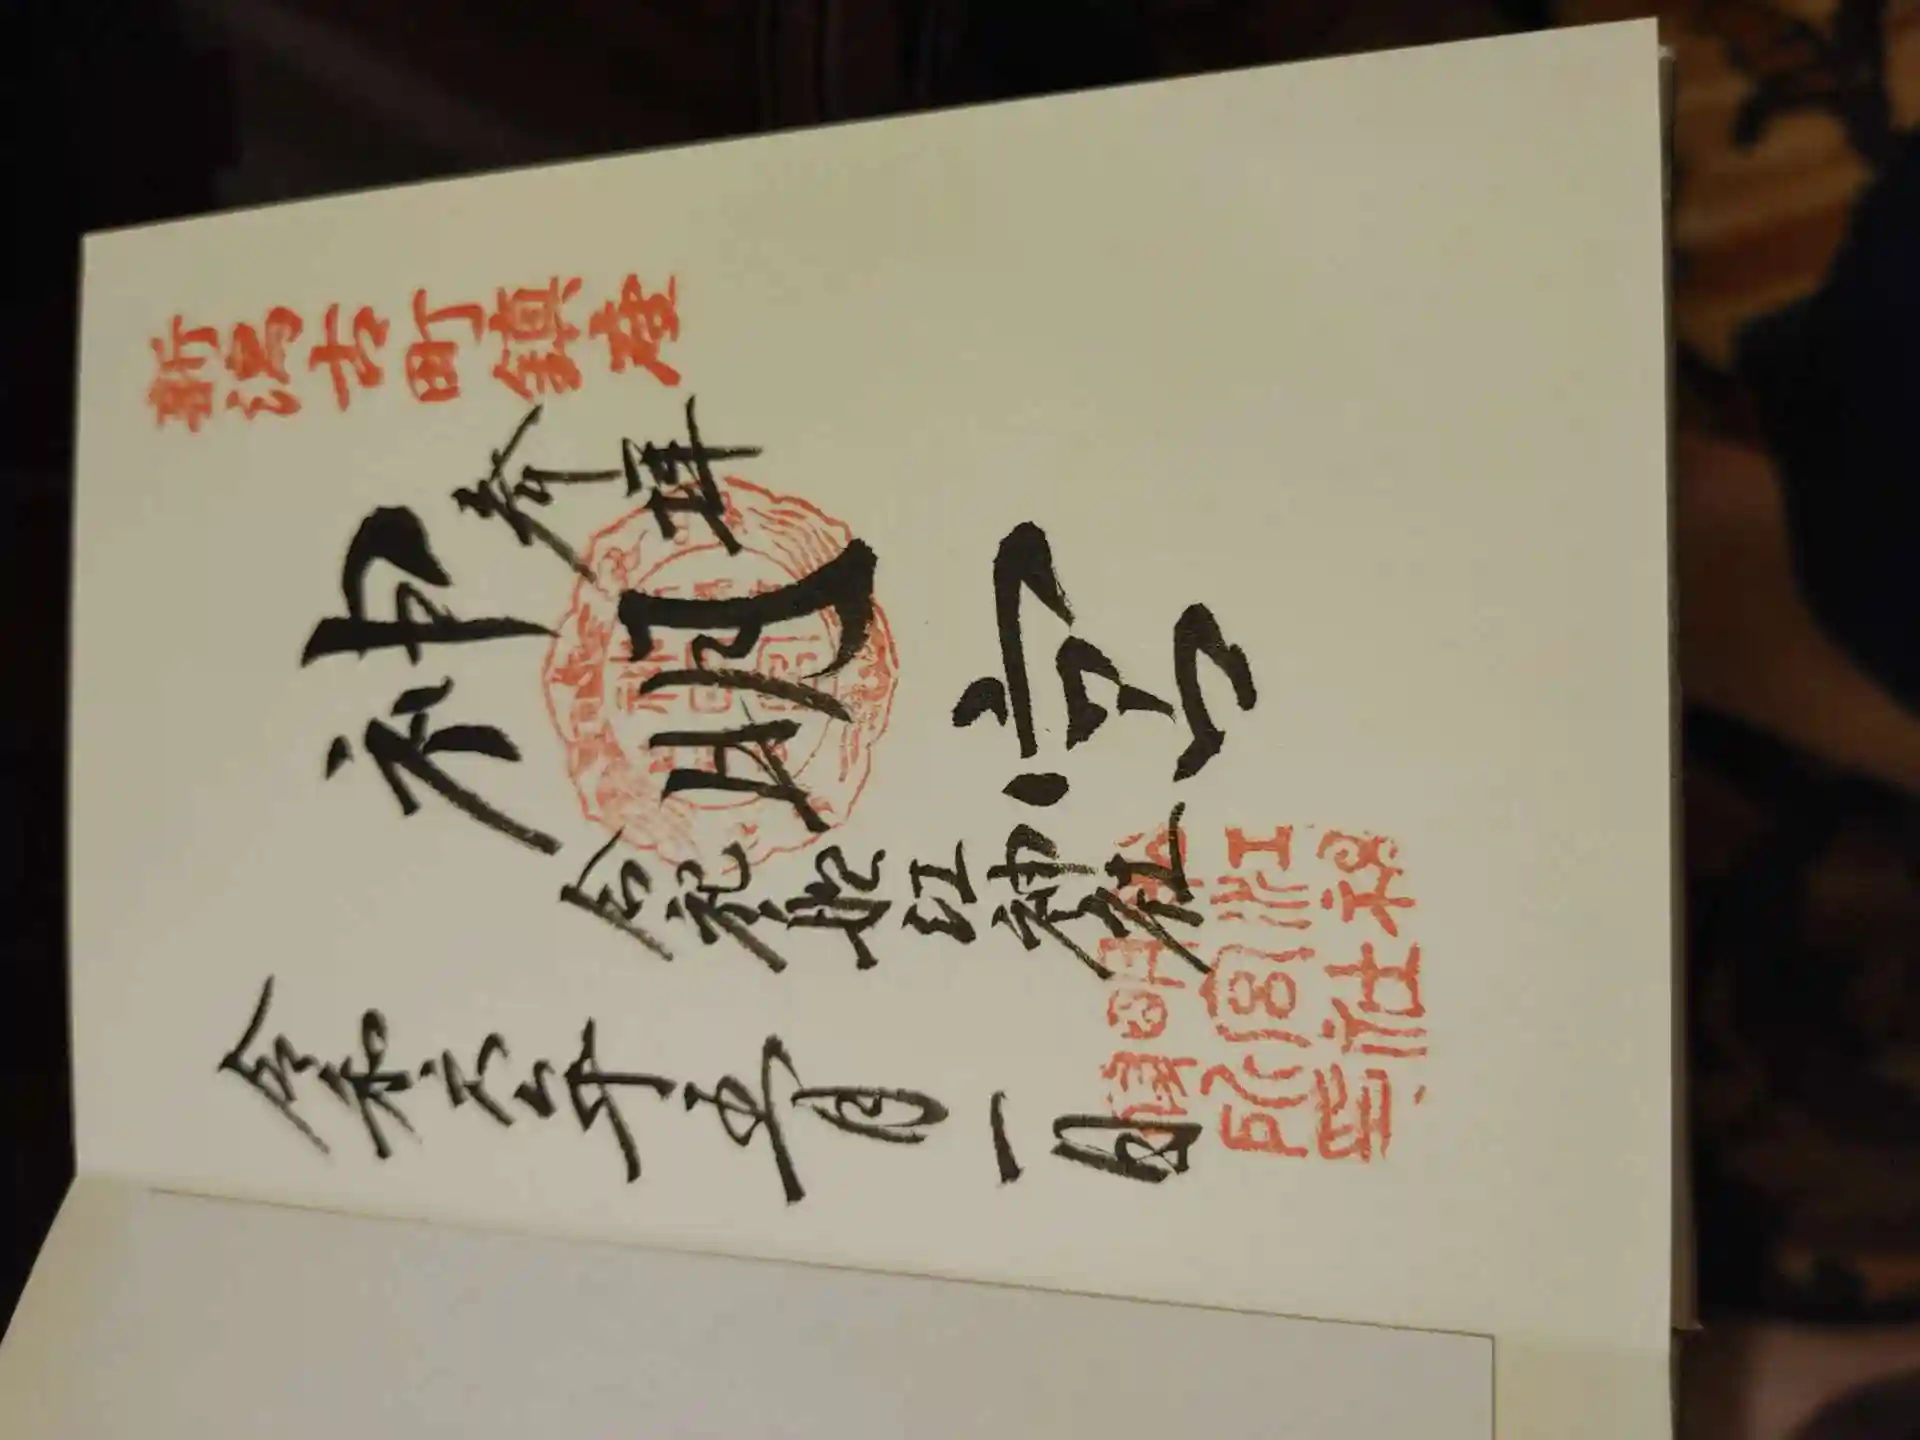 新潟古町鎮座
奉拝
神明宮
合祀舩江神社
令和六年五月一日